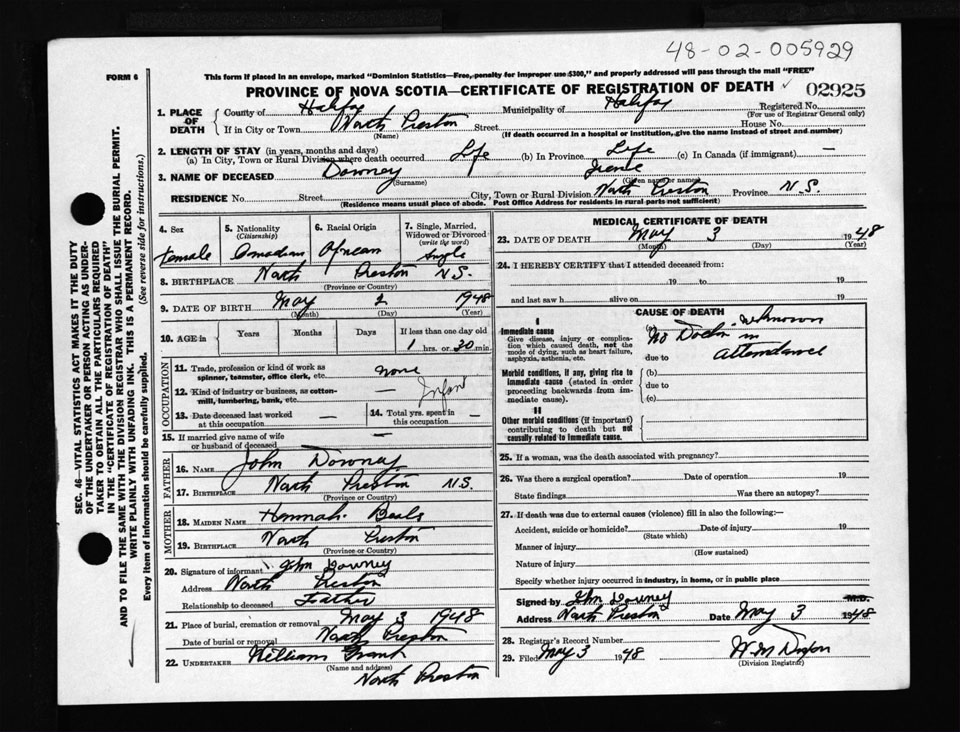 48-02-005929
FORM 6
This form if placed in an envelope, marked "Dominion Statistics—Free, penalty for improper use $300," and properly addressed will pass through the mail "FREE"
PROVINCE OF NOVA SCOTIA—CERTIFICATE OF REGISTRATION OF DEATH ✓ 02925
SEC. 46—VITAL STATISTICS ACT MAKES IT THE DUTY
OF THE UNDERTAKER OR PERSON ACTING AS UNDER-
TAKER TO OBTAIN ALL THE PARTICULARS REQUIRED
IN THE "CERTIFICATE OF REGISTRATION OF DEATH"
AND TO FILE THE SAME WITH THE DIVISION REGISTRAR WHO SHALL ISSUE THE BURIAL PERMIT.
WRITE PLAINLY WITH UNFADING INK. THIS IS A PERMANENT RECORD.
Every item of information should be carefully supplied. (See reverse side for instructions.)
1. PLACE OF DEATH
County of Halifax Municipality of Halifax Registered No.
(For use of Registrar General only)
If in City or Town North Preston Street House No.
(Name) (If death occurred in a hospital or institution, give the name instead of street and number)
2. LENGTH OF STAY (in years, months and days)
(a) In City, Town or Rural Division where death occurred Life (b) In Province Life (c) In Canada (if immigrant) —
3. NAME OF DECEASED Downey Irene
(Surname) (Given name or names)
RESIDENCE No. Street City, Town or Rural Division North Preston Province N.S.
(Residence means usual place of abode. Post Office Address for residents in rural parts not sufficient)
4. Sex
Female
5. Nationality
(Citizenship)
Canadian
6. Racial Origin
African
7. Single, Married,
Widowed or Divorced
(write the word)
Single
8. BIRTHPLACE North Preston N.S.
(Province or Country)
9. DATE OF BIRTH May 2 1948
(Month) (Day) (Year)
10. AGE in Years Months Days If less than one day old
1 hrs. or 30 min.
OCCUPATION
11. Trade, profession or kind of work as
spinner, teamster, office clerk, etc. none
12. Kind of industry or business, as cotton-
mill, lumbering, bank, etc. — Infant
13. Date deceased last worked
at this occupation —
14. Total yrs. spent in
this occupation —
15. If married give name of wife
or husband of deceased —
FATHER
16. NAME John Downey
17. BIRTHPLACE North Preston N.S.
(Province or Country)
MOTHER
18. MAIDEN NAME Hannah Beals
19. BIRTHPLACE North Preston
(Province or Country)
20. Signature of informant John Downey
Address North Preston
Relationship to deceased Father
21. Place of burial, cremation or removal May 3 1948
Date of burial or removal North Preston
22. UNDERTAKER William Grant
(Name and address)
North Preston
MEDICAL CERTIFICATE OF DEATH
23. DATE OF DEATH May 3 1948
(Month) (Day) (Year)
24. I HEREBY CERTIFY that I attended deceased from:
19 to 19
and last saw h alive on 19
CAUSE OF DEATH
I
Immediate cause
Give disease, injury or complica-
tion which caused death, not the
mode of dying, such as heart failure,
asphyxia, asthenia, etc.
(a) unknown
No Doctor in
due to attendance
Morbid conditions, if any, giving rise to
immediate cause (stated in order
proceeding backwards from im-
mediate cause).
(b)
due to
(c)
II
Other morbid conditions (if important)
contributing to death but not
causally related to immediate cause.
25. If a woman, was the death associated with pregnancy?
26. Was there a surgical operation? Date of operation 19
State findings Was there an autopsy?
27. If death was due to external causes (violence) fill in also the following:—
Accident, suicide or homicide? Date of injury 19
(State which)
Manner of injury
(How sustained)
Nature of injury
Specify whether injury occurred in industry, in home, or in public place
Signed by John Downey M.D.
Address North Preston Date May 3 1948
28. Registrar's Record Number
29. Filed May 3 1948
(Division Registrar)